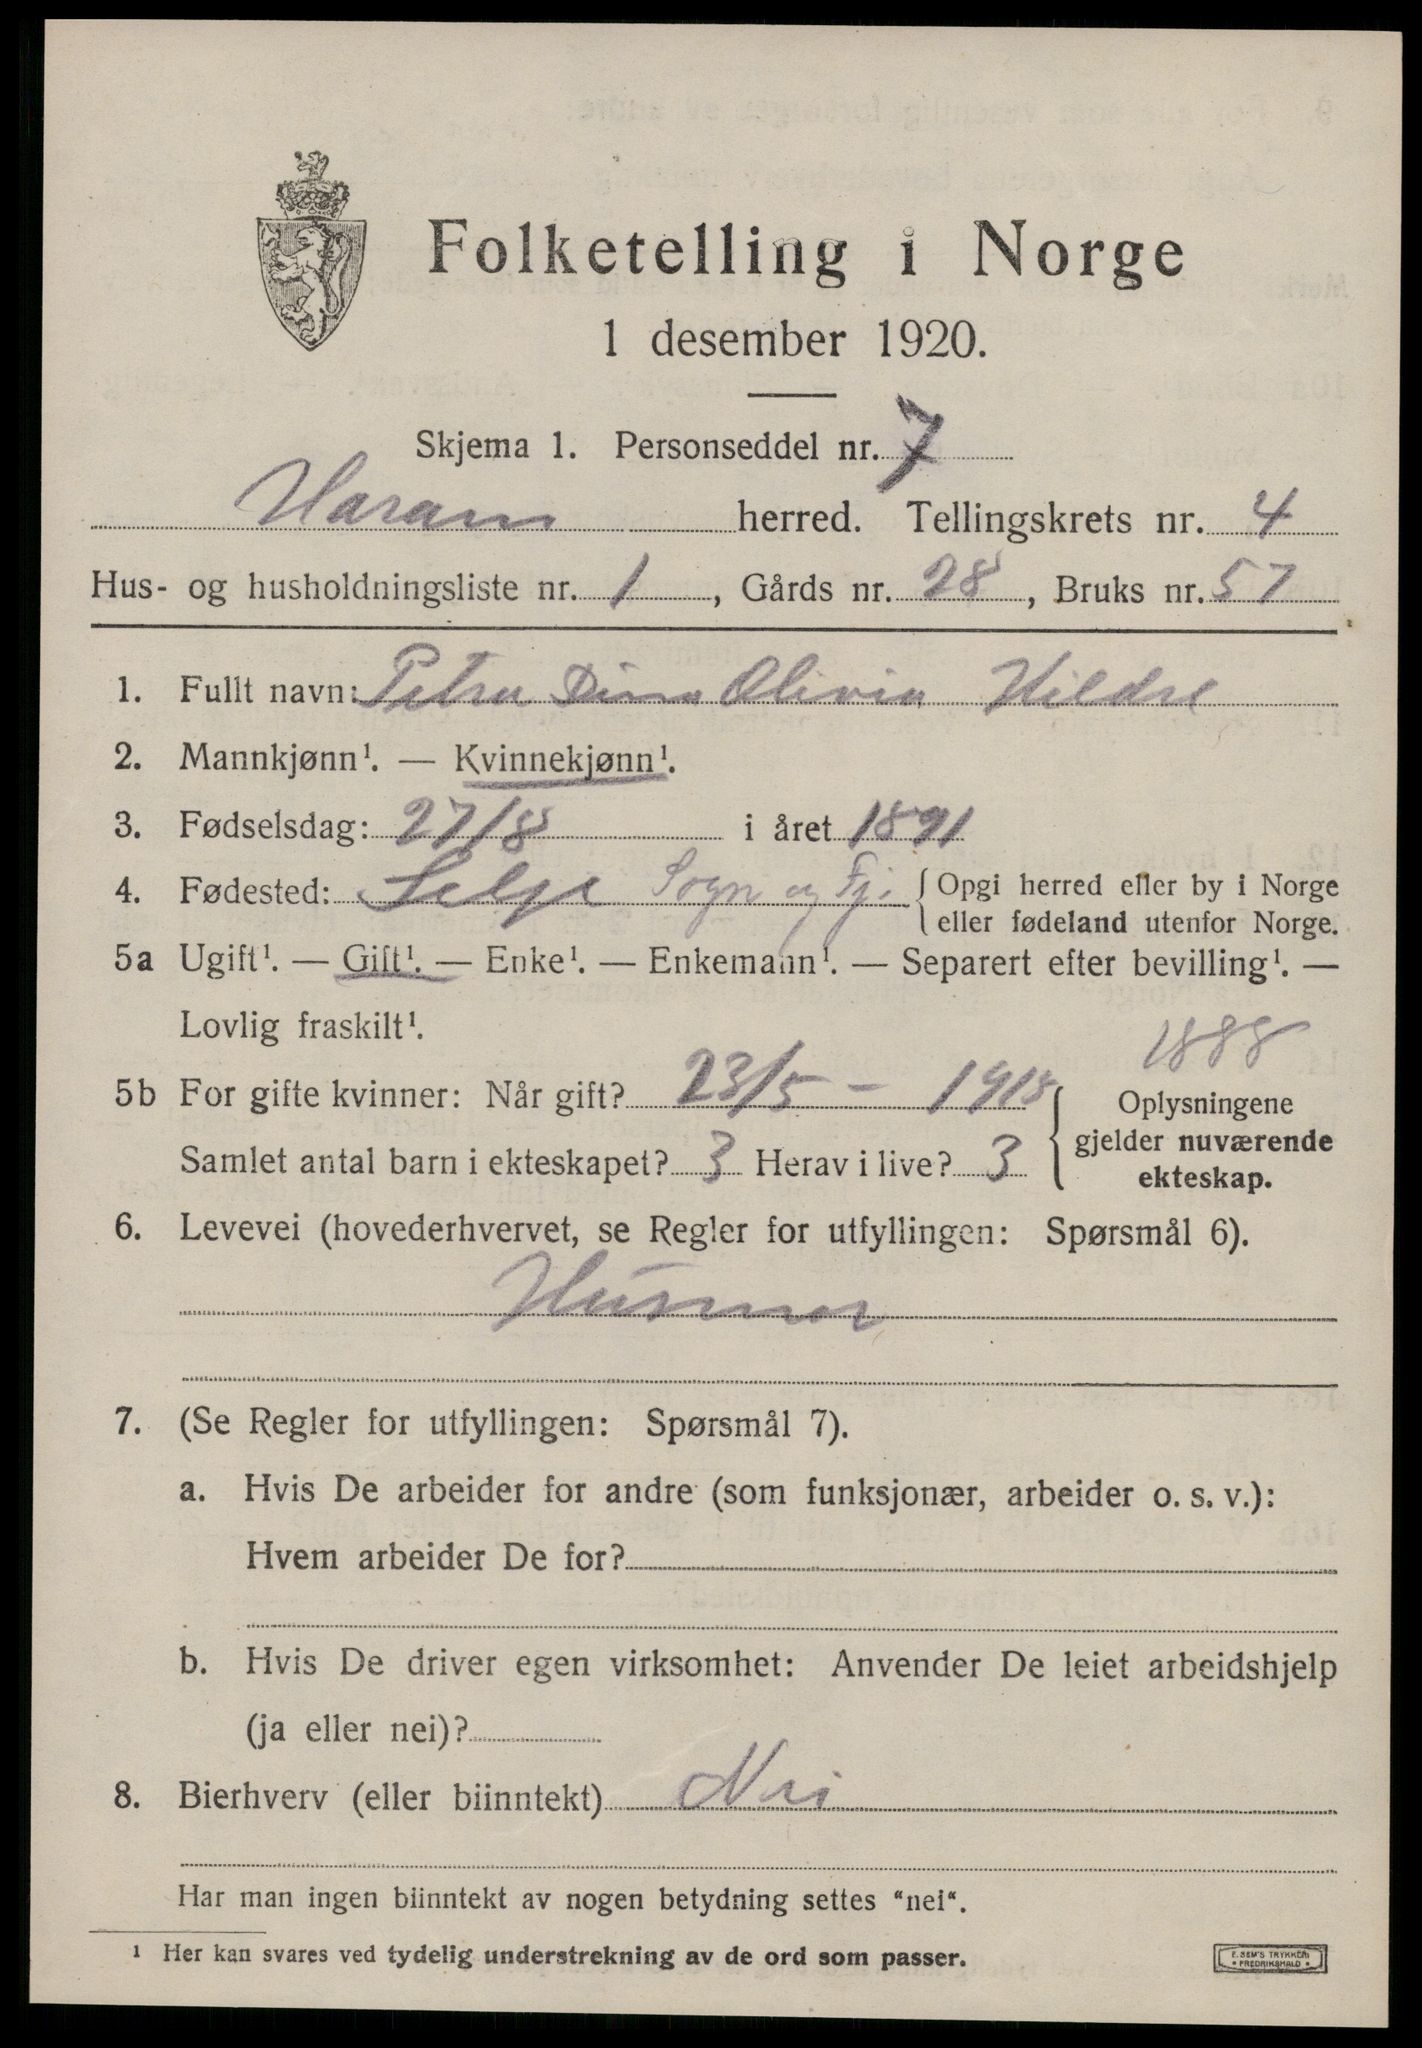 Folketelling i Norge
1 desember 1920.
Skjema 1. Personseddel nr. 7
Haram herred. Tellingskrets nr. 4
Hus- og husholdningsliste nr. 1, Gårds nr. 28, Bruks nr. 57
1. Fullt navn: Petra Dina Olivia Hildre
2. Mannkjønn¹. — Kvinnekjønn¹.
3. Fødselsdag: 27/8 i året 1891
4. Fødested: Selje Sogn og Fj. { Opgi herred eller by i Norge
eller fødeland utenfor Norge.
5a Ugift¹. — Gift¹. — Enke¹. — Enkemann¹. — Separert efter bevilling¹. —
Lovlig fraskilt¹.
1888
5b For gifte kvinner: Når gift? 23/5 - 1918 { Oplysningene
gjelder nuværende
Samlet antal barn i ekteskapet? 3 Herav i live? 3
ekteskap.
6. Levevei (hovederhvervet, se Regler for utfyllingen: Spørsmål 6).
Husmor
7. (Se Regler for utfyllingen: Spørsmål 7).
a. Hvis De arbeider for andre (som funksjonær, arbeider o. s. v.):
Hvem arbeider De for?
b. Hvis De driver egen virksomhet: Anvender De leiet arbeidshjelp
(ja eller nei)?
8. Bierhverv (eller biinntekt) Nei
Har man ingen biinntekt av nogen betydning settes "nei".
¹ Her kan svares ved tydelig understrekning av de ord som passer.
E. SEM'S TRYKKERI
• FREDRIKSHALD •